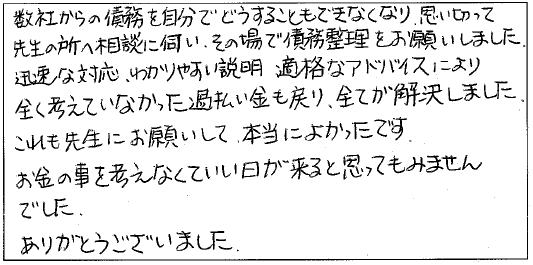 数社からの債務を自分でどうすることもできなくなり、思い切って
先生の所へ相談に伺い、その場で債務整理をお願いしました。
迅速な対応、わかりやすい説明 適格なアドバイスにより
全く考えていなかった過払い金も戻り、全てが解決しました。
これも先生にお願いして 本当によかったです。
お金の事を考えなくていい日が来ると思ってもみません
でした。
ありがとうございました。